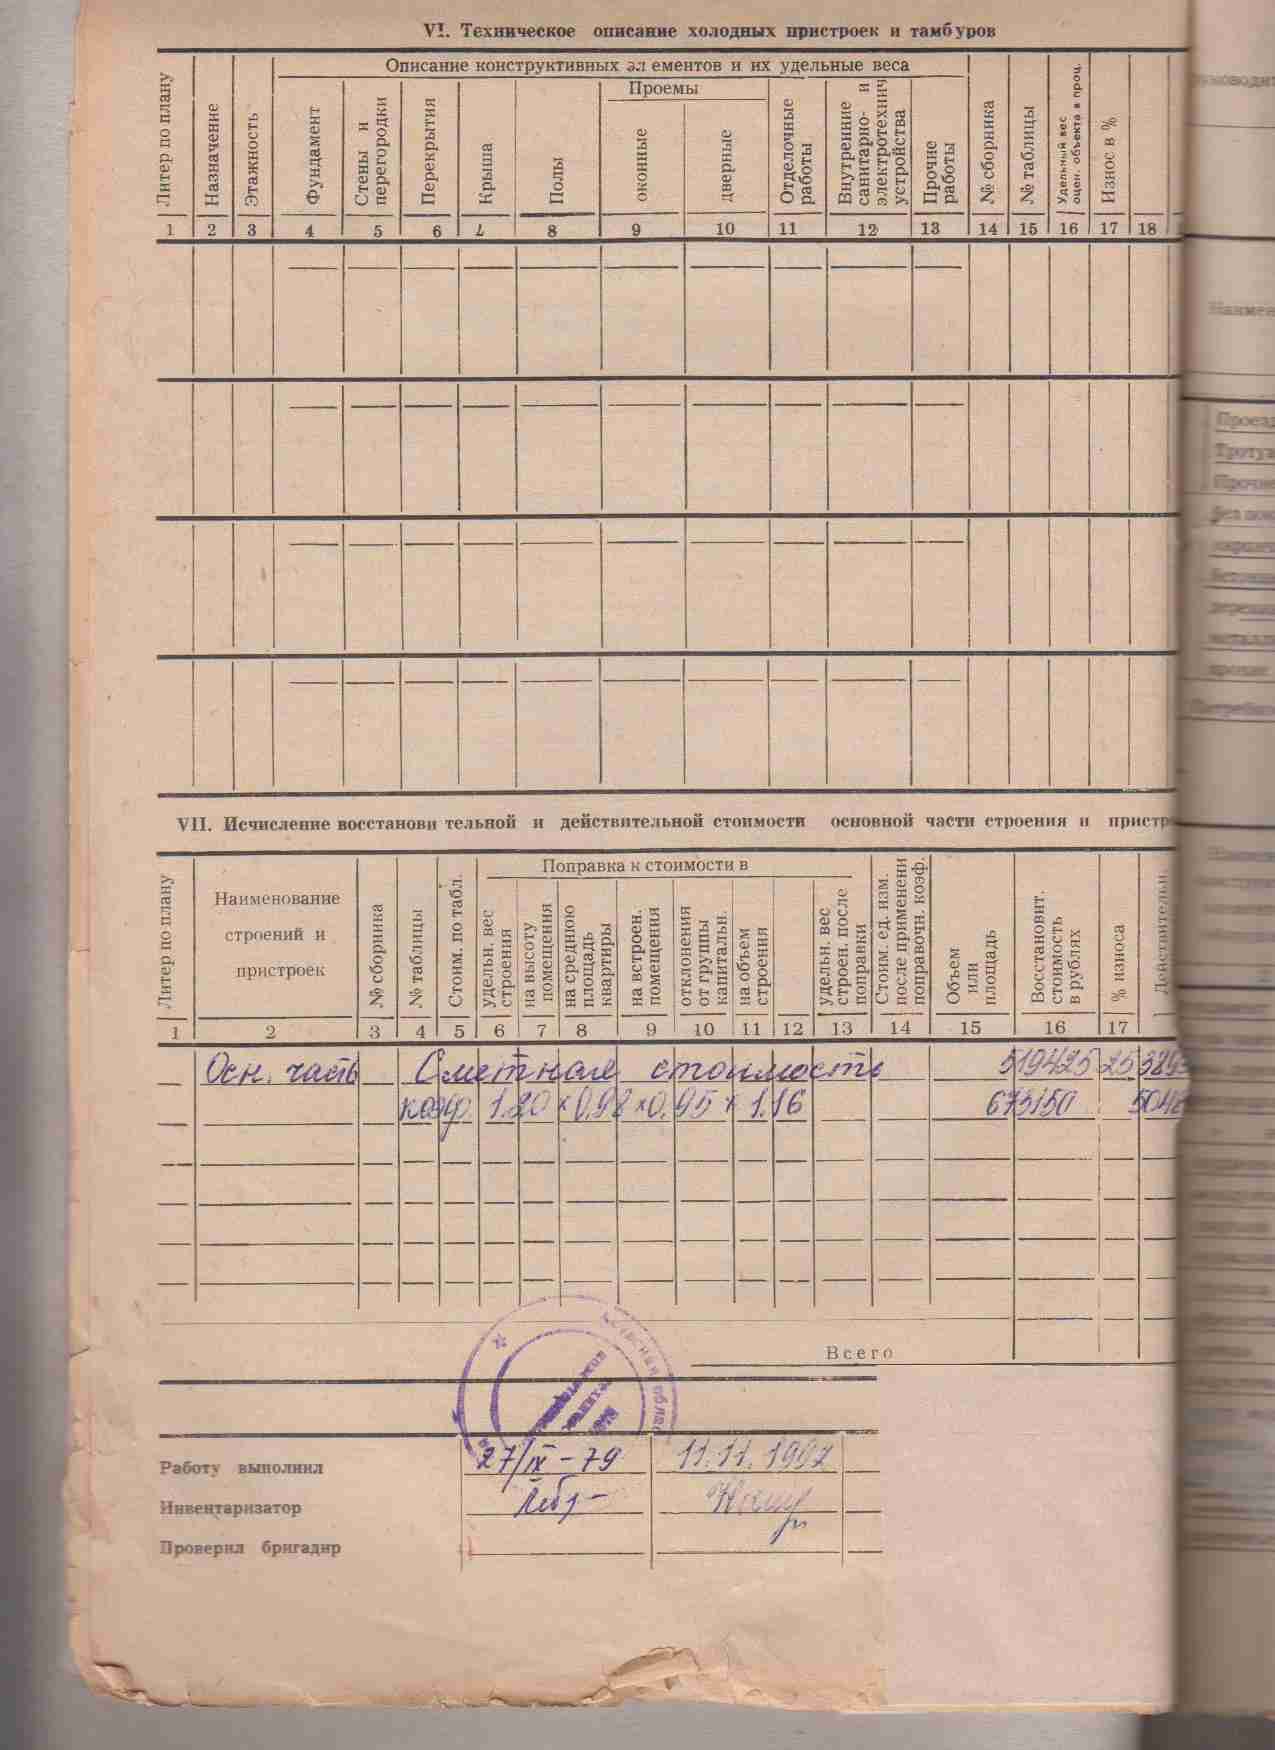 VI. Техническое описание холодных пристроек и тамбуров
Литер по плану
Назначение
Этажность
Описание конструктивных эл ементов и их удельные веса
Фундамент
Стены и перегородки
Перекрытия
Крыша
Полы
Проемы
оконные
дверные
Отделочные работы
Внутренние санитарно- и электротехнич устройства
Прочие работы
№ сборника
№ таблицы
Удельный вес оцен. объекта в проц.
Износ в %
1 2 3 4 5 6 7 8 9 10 11 12 13 14 15 16 17 18
VII. Исчисление восстанови тельной и действительной стоимости основной части строения и пристро
Литер по плану
Наименование
строений и
пристроек
№ сборника
№ таблицы
Стоим. по табл.
Поправка к стоимости в
удельн. вес строения
на высоту помещения
на среднюю площадь квартиры
на встроен. помещения
отклонения от группы капитальн.
на объем строения
удельн. вес строен. после поправки
Стоим. ед. изм. после применени поправочн. коэф.
Объем или площадь
Восстановит. стоимость в рублях
% износа
Действительн.
1 2 3 4 5 6 7 8 9 10 11 12 13 14 15 16 17
Осн. часть Сметная стоимость 519425 25 3895
коэф 1.20 × 0,98 × 0.95 × 1.16 673150 5048
Всего
27/IX-79 11.11.1997
Работу выполнил
Инвентаризатор
Проверил бригадир
Наимен
Проезд
Тротуа
Прочие